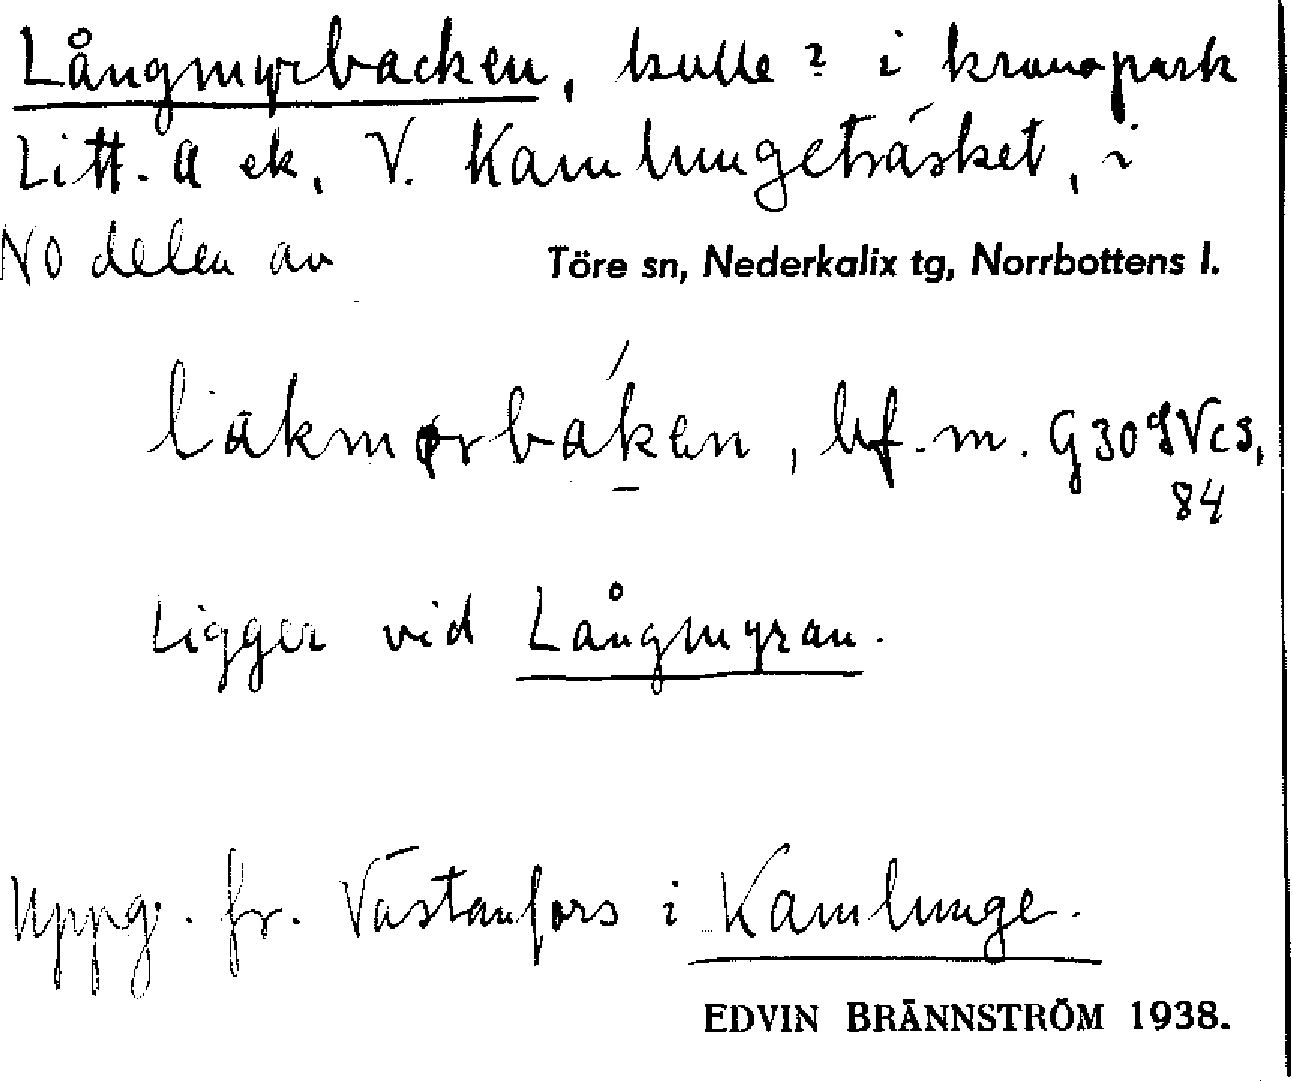 Långmyrbacken, kulle? i kronopark
Litt. A ek, V. Kamlungeträsket, i
NO delen av Töre sn, Nederkalix tg, Norrbottens l.
bf. m.
84
Ligger vid Långmyran.
Uppg. fr. Västanfors i Kamlunge.
EDVIN BRÄNNSTRÖM 1938.